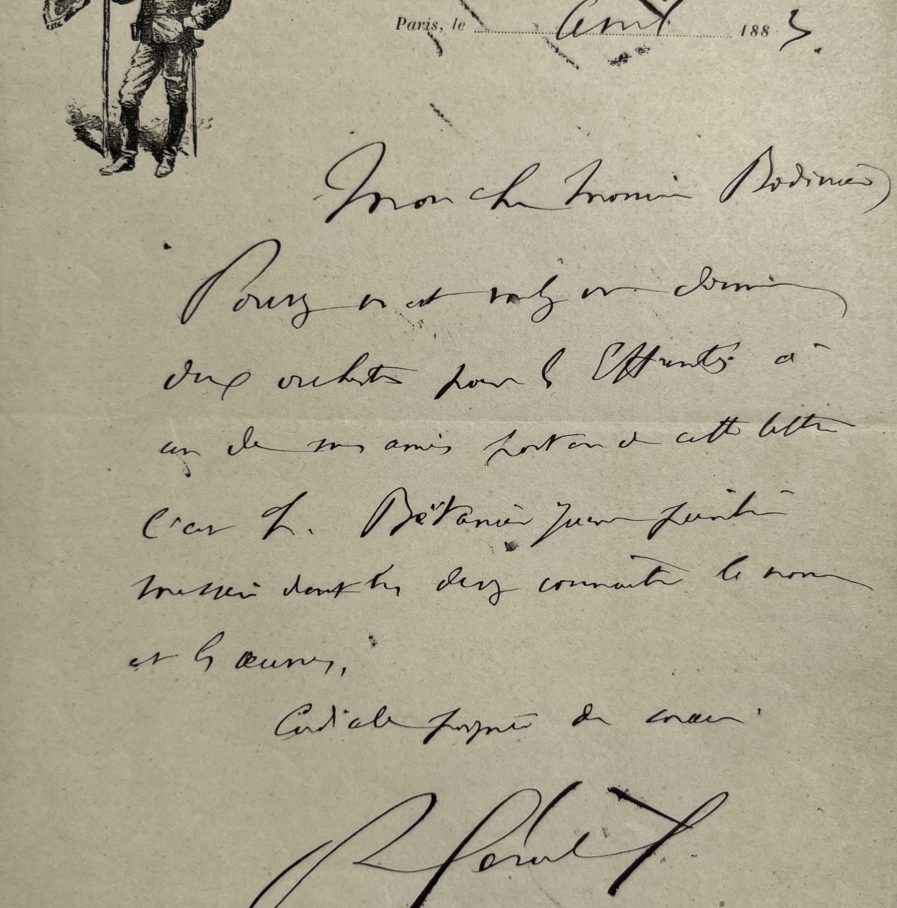 Paris, le Avril 1883.
Mon cher Monsieur Bodinier
Pouvez vous et voulez vous donner
deux orchestres pour les Effrontés à
un de mes amis porteur de cette lettre
C'est M. Bétannier jeune peintre
messin dont vous devez connaître le nom
et les œuvres,
Cordiale poignée de main